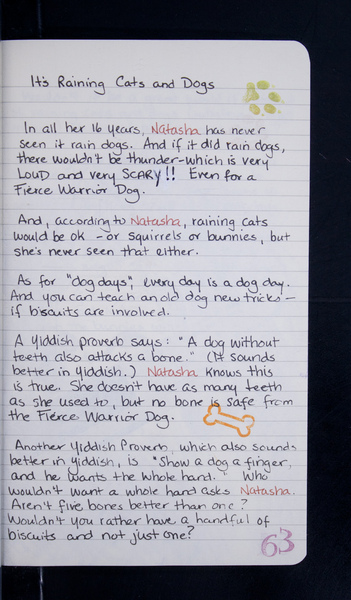 It's Raining Cats and Dogs
In all her 16 years, Natasha has never
seen it rain dogs. And if it did rain dogs,
there wouldn't be thunder-which is very
LOUD and very SCARY!! Even for a
Fierce Warrior Dog.
And, according to Natasha, raining cats
would be ok - or squirrels or bunnies, but
she's never seen that either.
As for "dog days", every day is a dog day.
And you can teach an old dog new tricks -
if biscuits are involved.
A Yiddish proverb says: "A dog without
teeth also attacks a bone." (It sounds
better in Yiddish.) Natasha knows this
is true. She doesn't have as many teeth
as she used to, but no bone is safe from
the Fierce Warrior Dog.
Another Yiddish Proverb, which also sounds
better in Yiddish, is "Show a dog a finger,
and he wants the whole hand." Who
wouldn't want a whole hand asks Natasha.
Aren't five bones better than one?
Wouldn't you rather have a handful of
biscuits and not just one?
63